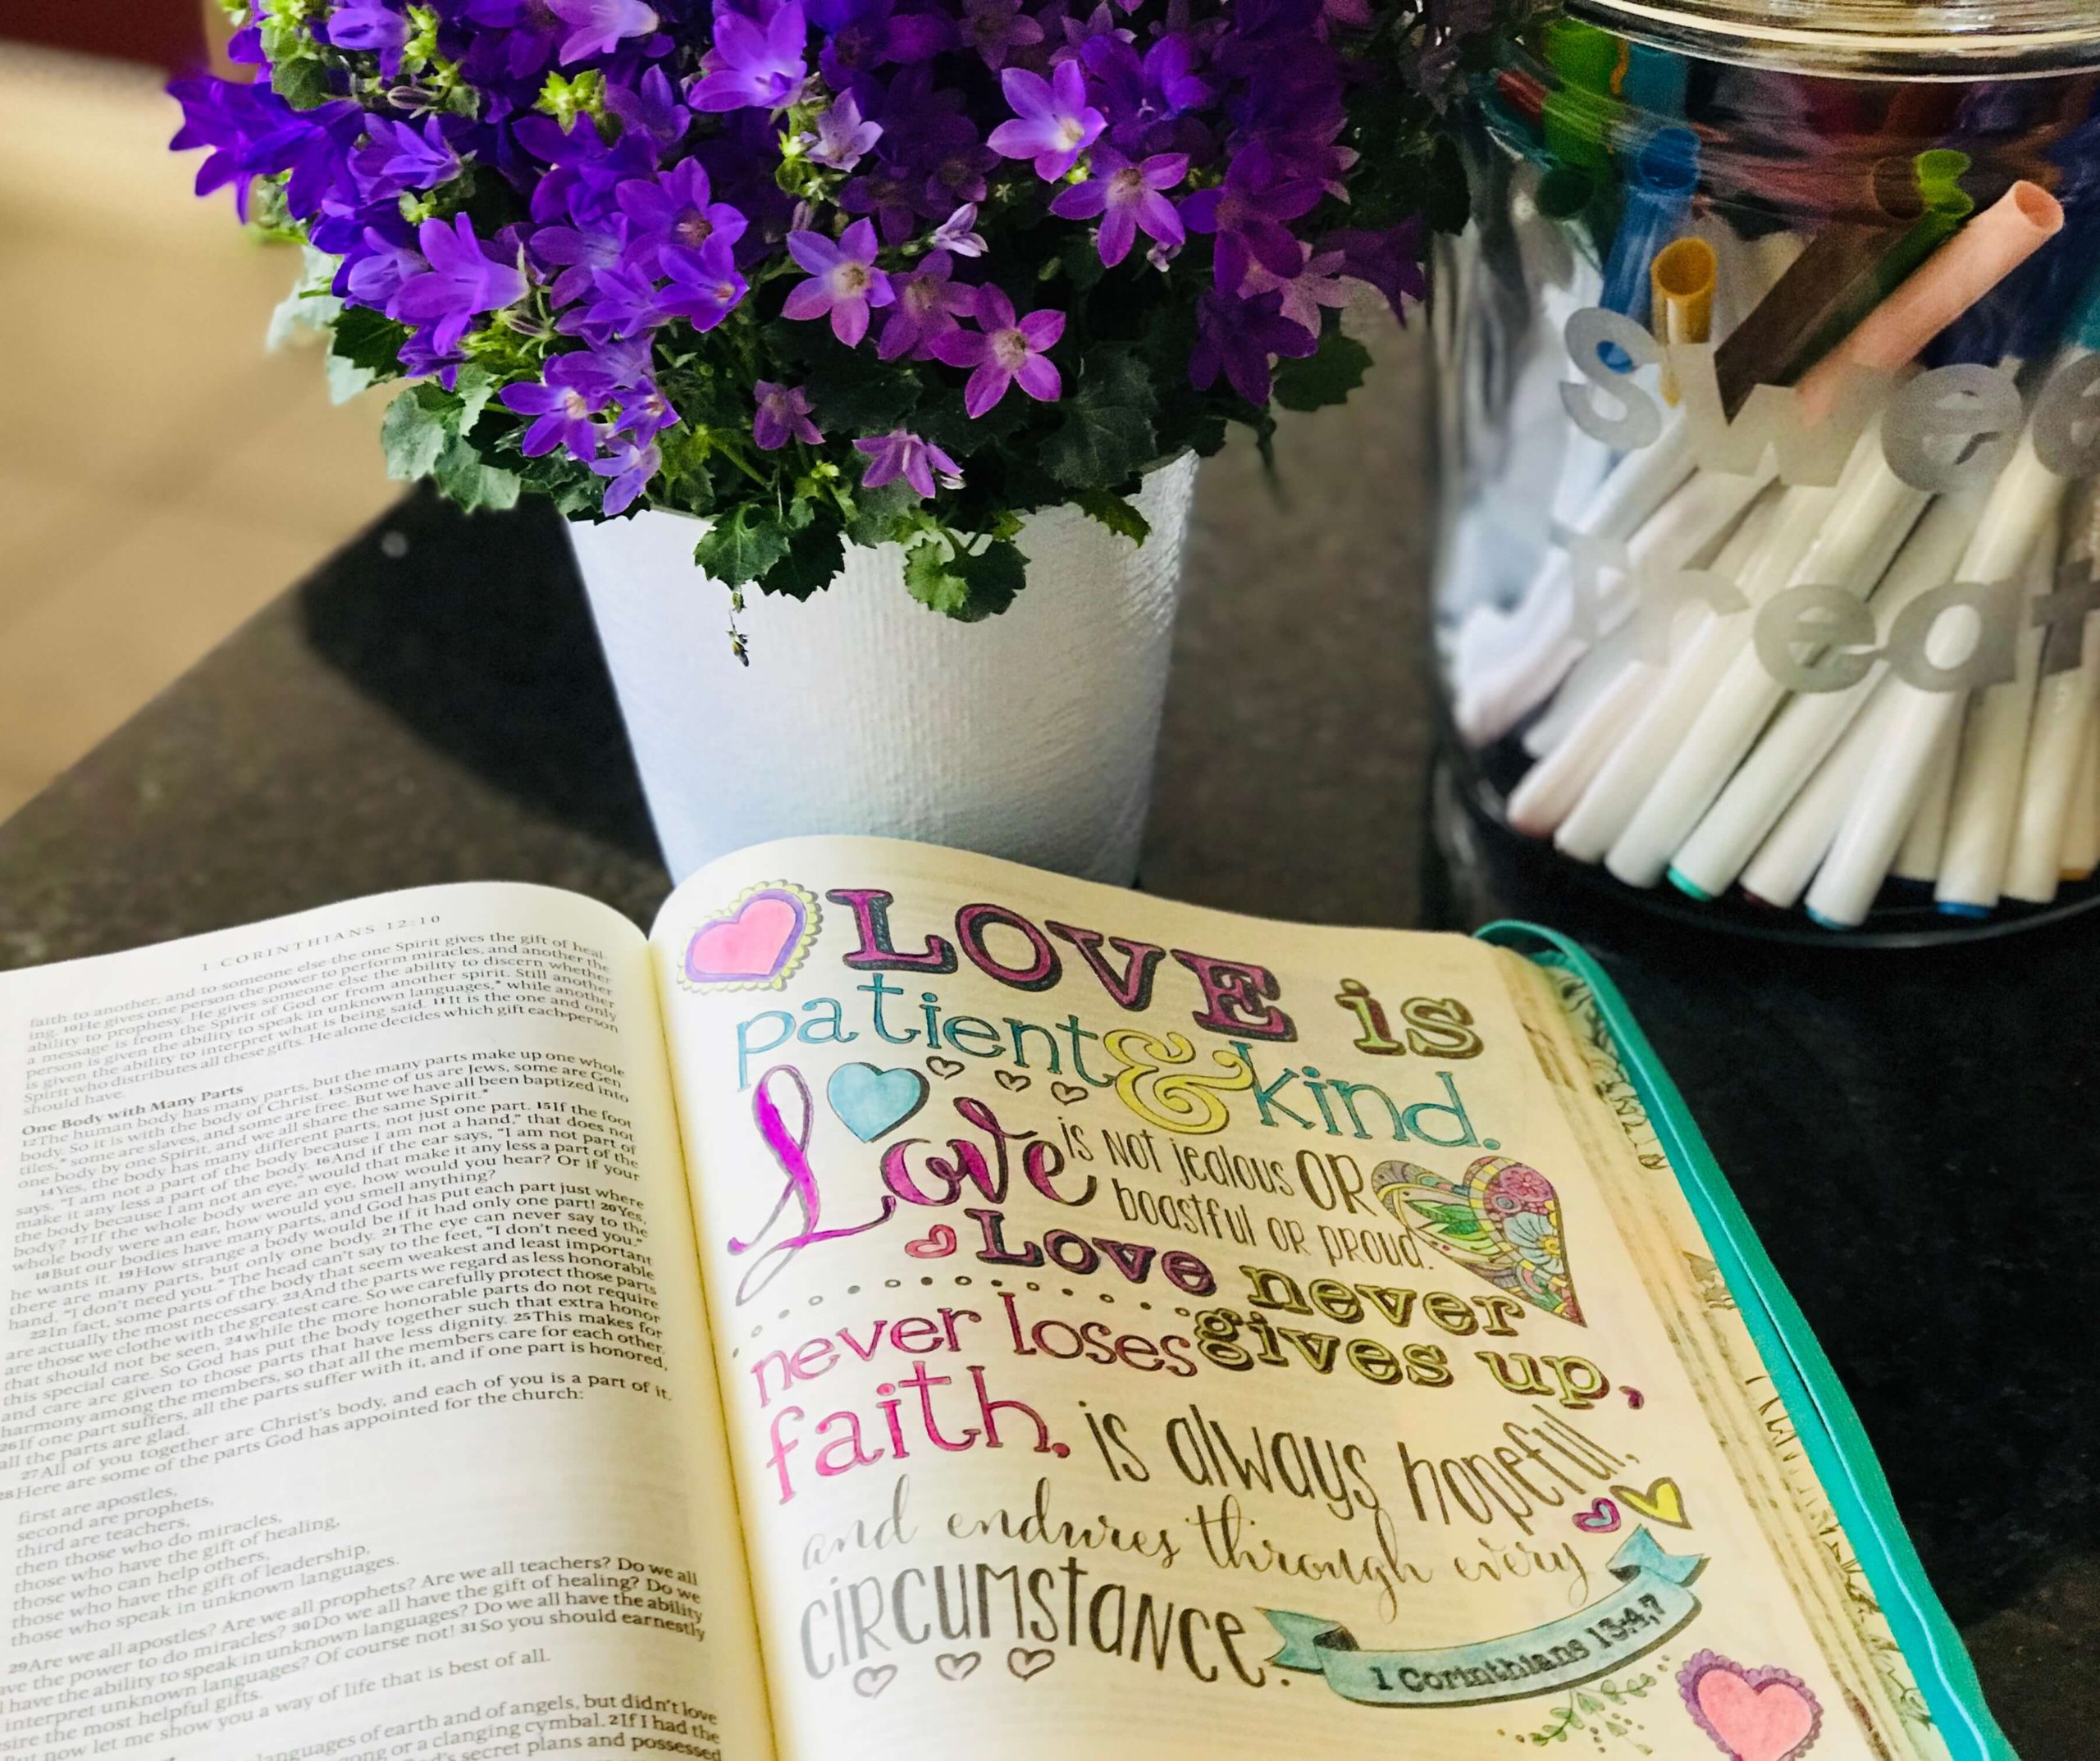 sweet
treat
1 CORINTHIANS 12:10
faith to another, and to someone else the one Spirit gives the gift of heal-
ing. 10He gives one person the power to perform miracles, and another the
ability to prophesy. He gives someone else the ability to discern whether
a message is from the Spirit of God or from another spirit. Still another
person is given the ability to speak in unknown languages,* while another
is given the ability to interpret what is being said. 11It is the one and only
Spirit who distributes all these gifts. He alone decides which gift each person
should have.
One Body with Many Parts
12The human body has many parts, but the many parts make up one whole
body. So it is with the body of Christ. 13Some of us are Jews, some are Gen-
tiles,* some are slaves, and some are free. But we have all been baptized into
one body by one Spirit, and we all share the same Spirit.*
14Yes, the body has many different parts, not just one part. 15If the foot
says, "I am not a part of the body because I am not a hand," that does not
make it any less a part of the body. 16And if the ear says, "I am not part of
the body because I am not an eye," would that make it any less a part of the
body? 17If the whole body were an eye, how would you hear? Or if your
whole body were an ear, how would you smell anything?
18But our bodies have many parts, and God has put each part just where
he wants it. 19How strange a body would be if it had only one part! 20Yes,
there are many parts, but only one body. 21The eye can never say to the
hand, "I don't need you." The head can't say to the feet, "I don't need you."
22In fact, some parts of the body that seem weakest and least important
are actually the most necessary. 23And the parts we regard as less honorable
are those we clothe with the greatest care. So we carefully protect those parts
that should not be seen, 24while the more honorable parts do not require
this special care. So God has put the body together such that extra honor
and care are given to those parts that have less dignity. 25This makes for
harmony among the members, so that all the members care for each other.
26If one part suffers, all the parts suffer with it, and if one part is honored,
all the parts are glad.
27All of you together are Christ's body, and each of you is a part of it.
28Here are some of the parts God has appointed for the church:
first are apostles,
second are prophets,
third are teachers,
then those who do miracles,
those who have the gift of healing,
those who can help others,
those who have the gift of leadership,
those who speak in unknown languages.
29Are we all apostles? Are we all prophets? Are we all teachers? Do we all
have the power to do miracles? 30Do we all have the gift of healing? Do we
all have the ability to speak in unknown languages? Do we all have the ability
interpret unknown languages? Of course not! 31So you should earnestly
sire the most helpful gifts.
But now let me show you a way of life that is best of all.
languages of earth and of angels, but didn't love
gong or a clanging cymbal. 2If I had the
God's secret plans and possessed
LOVE is
patient & kind.
Love is not jealous OR
boastful or proud.
Love never
gives up,
never loses
faith. is always hopeful,
and endures through every
circumstance.
1 Corinthians 13:4,7